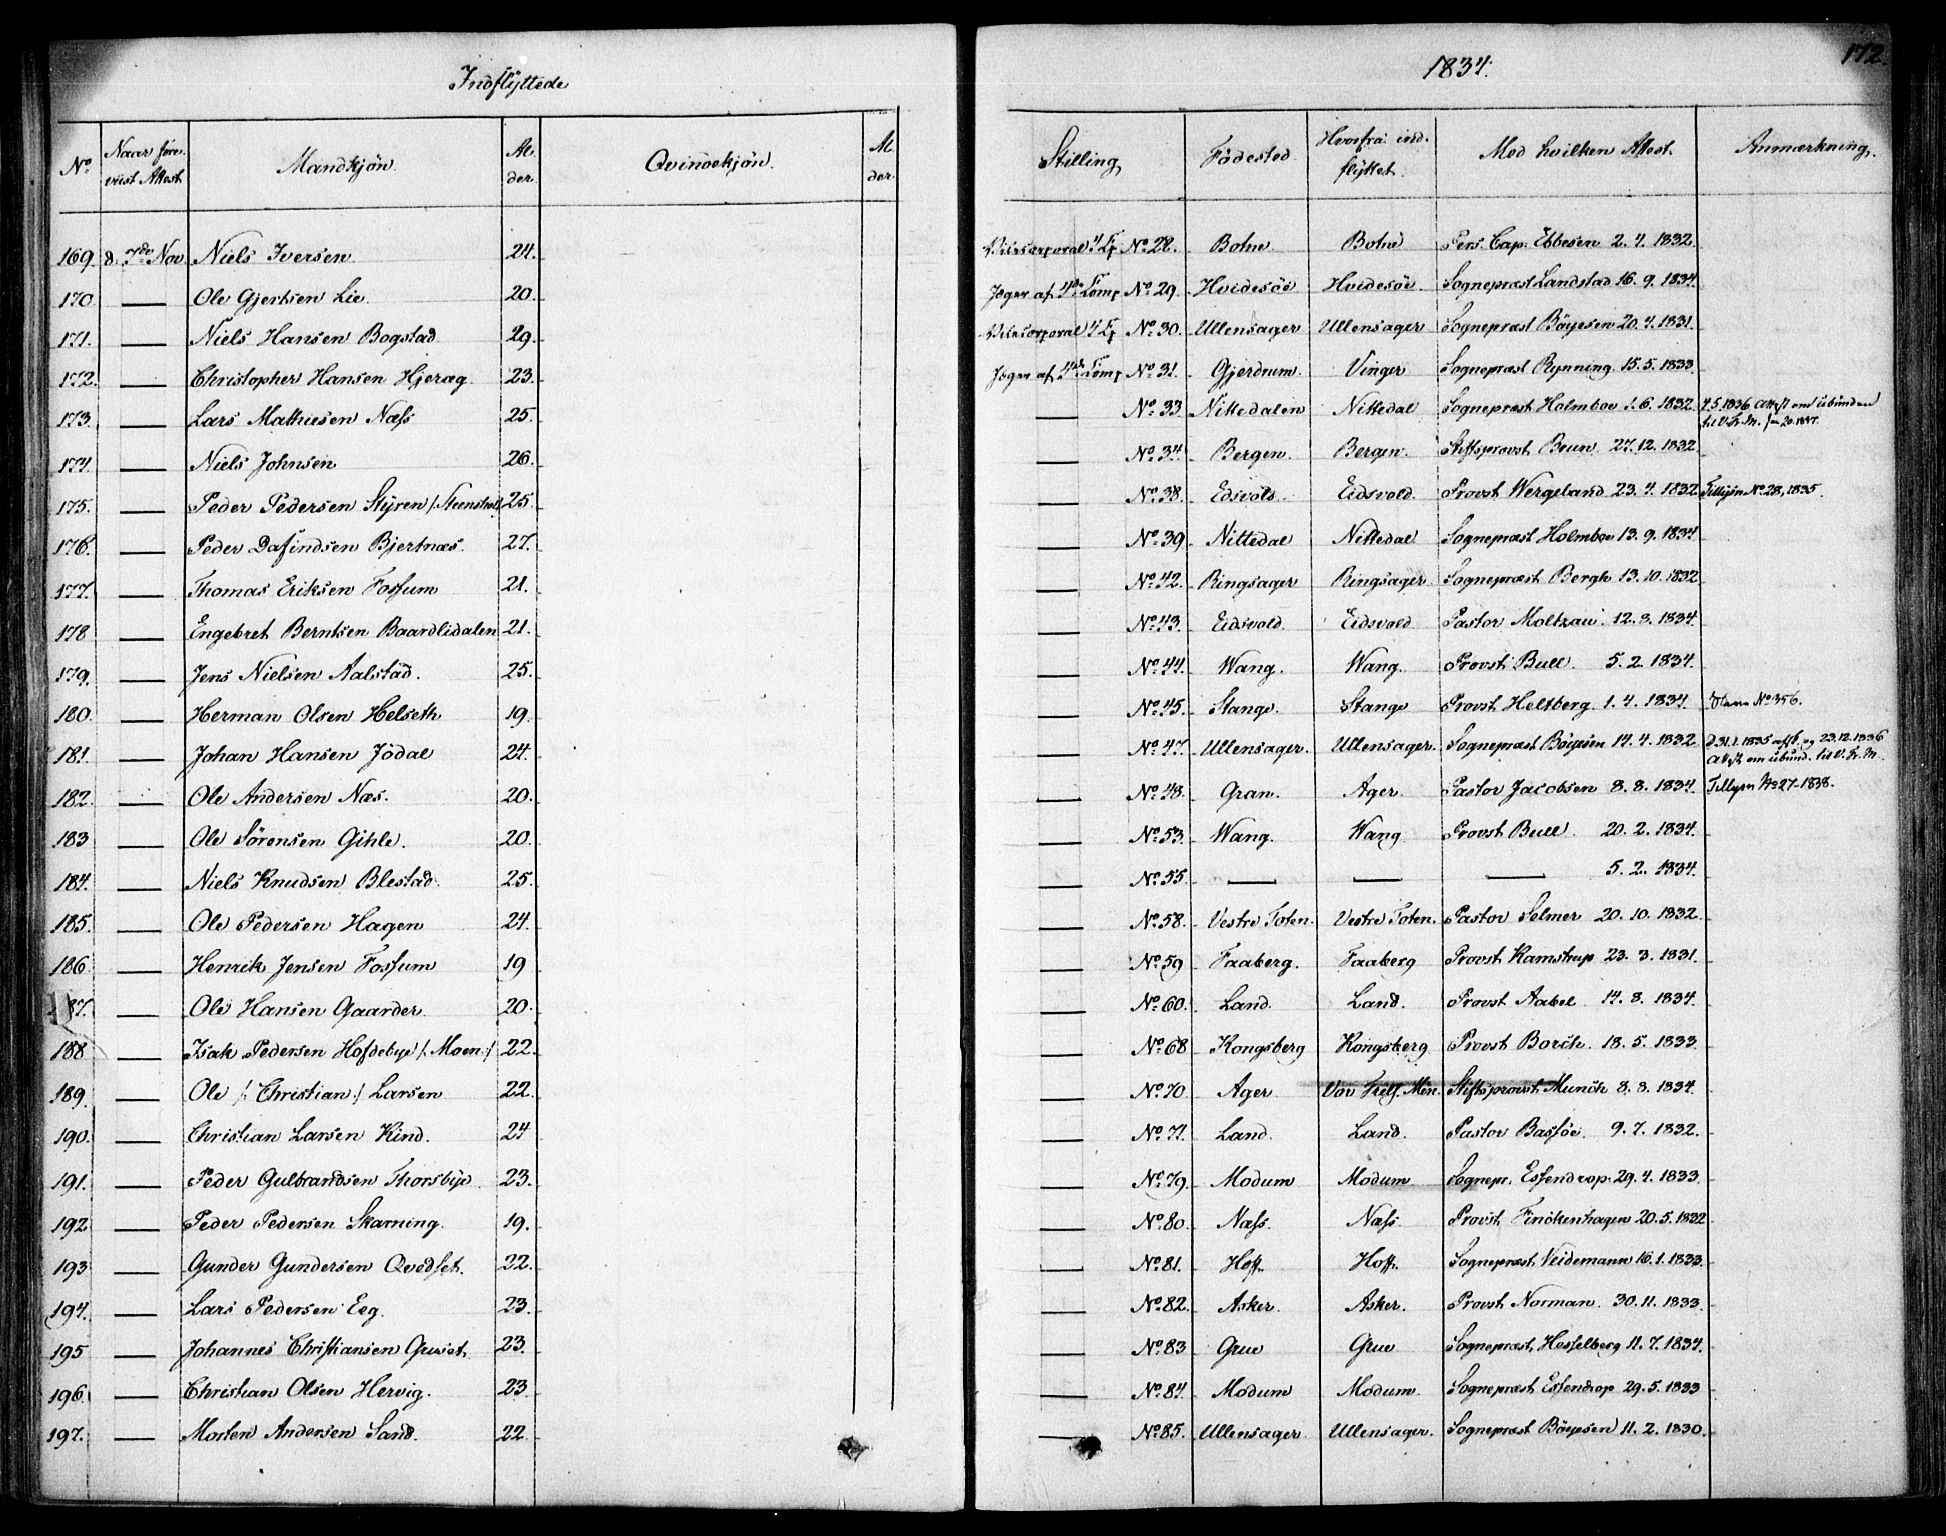 172.
Indflyttede
1834.
No Naar fore- viist Attest. Mandkjön. Al- der. Qvindekjön. Al- der. Stilling Födested Hvorfra ind- flyttet. Med hvilken Attest. Anmærkning.
169. d. 7de Nov. Niels Iversen 24. No 28. Botne Botne Pers. Cap: Ebbesen 2. 4. 1832.
170. — Ole Gjertsen Lie 20. Jæger af 4de Comp No 29. Hvidesöe Hvidesöe Sognepræst Landstad 16. 9. 1834.
171. — Niels Hansen Bogstad 29. No 30. Ullensager Ullensager Sognepræst Böyesen 20. 4. 1831.
172. — Christopher Hansen Hjerag 23. Jæger af 4de Comp No 31. Gjerdrum Vinger Sognepræst Rynning 15. 5. 1833.
173. — Lars Mathiesen Næss 25. — No 33. Nittedalen Nittedal Sognepræst Holmboe 1. 6. 1832. 4.5.1836 Attest om ubunden
til V. Fr. M.
174. — Niels Johnsen 26. — No 34. Bergen. Bergen. Stiftsprovst Brun 27. 12. 1832.
175. — Peder Pedersen Styren /: Steensted 25. — No 38. Edsvold Eidsvold Provst Wergeland 23. 4. 1832. Tillysn No 28, 1835.
176. — Peder Dafindsen Bjertnæs. 27. — No 39 Nittedal Nittedal Sognepræst Holmboe 13. 9. 1834
177. — Thomas Eriksen Fossum 21. — No 42. Ringsager Ringsager Sognepræst Bergh 13. 10. 1832
178 — Engebret Berntsen Baardlidalen 21. — No 43. Eidsvold Eidsvold Pastor Moltzau 12. 8. 1834
179. — Jens Nielsen Aalstad. 25. — No 44. Wang. Wang. Provst Bull. 5. 2. 1834.
180. — Herman Olsen Helseth 19. — No 45. Stange. Stange Provst Heltberg 1. 4. 1834. No 356.
181. — Johan Hansen Jödal 24. — No 47. Ullensager. Ullensager. Sognepræst Böyesen 14. 4. 1832 d. 31.1.1835 og 23.12.1836
Attest om ubund. til V. Fr. M.
182. — Ole Andersen Næs. 20. — No 48. Gran. Ager. Pastor Jacobsen 8. 8. 1834. Tillysn No 27-1838.
183 — Ole Sörensen Gihle. 20. — No 53. Wang. Wang Provst Bull 20. 2. 1834.
184. — Niels Knudsen Blestad. 25. — No 55. — — — 5. 2. 1834.
185. — Ole Pedersen Hagen 24. — No 58. Vestre Toten. Vestre Toten. Pastor Selmer 20. 10. 1832.
186. — Henrik Jensen Fossum 19 — No 59 Faaberg. Faaberg Provst Ramstrup 23. 3. 1831.
187. — Ole Hansen Gaarder 20. — No 60. Land. Land. Provst Aabel 14. 8. 1834.
188 — Isak Pedersen Hofdebye /: Moen :/ 22. — No 68 Kongsberg Kongsberg Provst Borch. 18. 5. 1833
189. — Ole /: Christian :/ Larsen 22. — No 70. Ager Vor Frels. Men. Stiftsprovst Munch 8. 8. 1834.
190. — Christian Larsen Kind. 24 — No 71. Land. Land. Pastor Bassöe. 9. 7. 1832.
191. — Peder Gulbrandsen Thorsbye 23. — No 79. Modum Modum Sognepr. Essendrop. 29. 4. 1833
192 — Peder Pedersen Skarning. 19. — No 80. Næss. Næss. Provst Finckenhagen 20. 5. 1832
193 — Gunder Gundersen Qvedset. 22. — No 81. Hoff. Hoff. Sognepræst Veidemann 16. 1. 1833.
194. — Lars Pedersen Eeg. 23. — No 82. Asker. Asker. Provst Norman. 30. 11. 1833.
195 — Johannes Christiansen Gruset. 23. — No 83 Grue Grue Sognepræst Hesselberg 11. 7. 1834.
196. — Christian Olsen Hervig. 23 — No 84. Modum Modum Sognepræst Essendrop 29. 5. 1833
197. — Morten Andersen Sand. 22 — No 85. Ullensager Ullensager. Sognepræst Böyesen 11. 2. 1830.